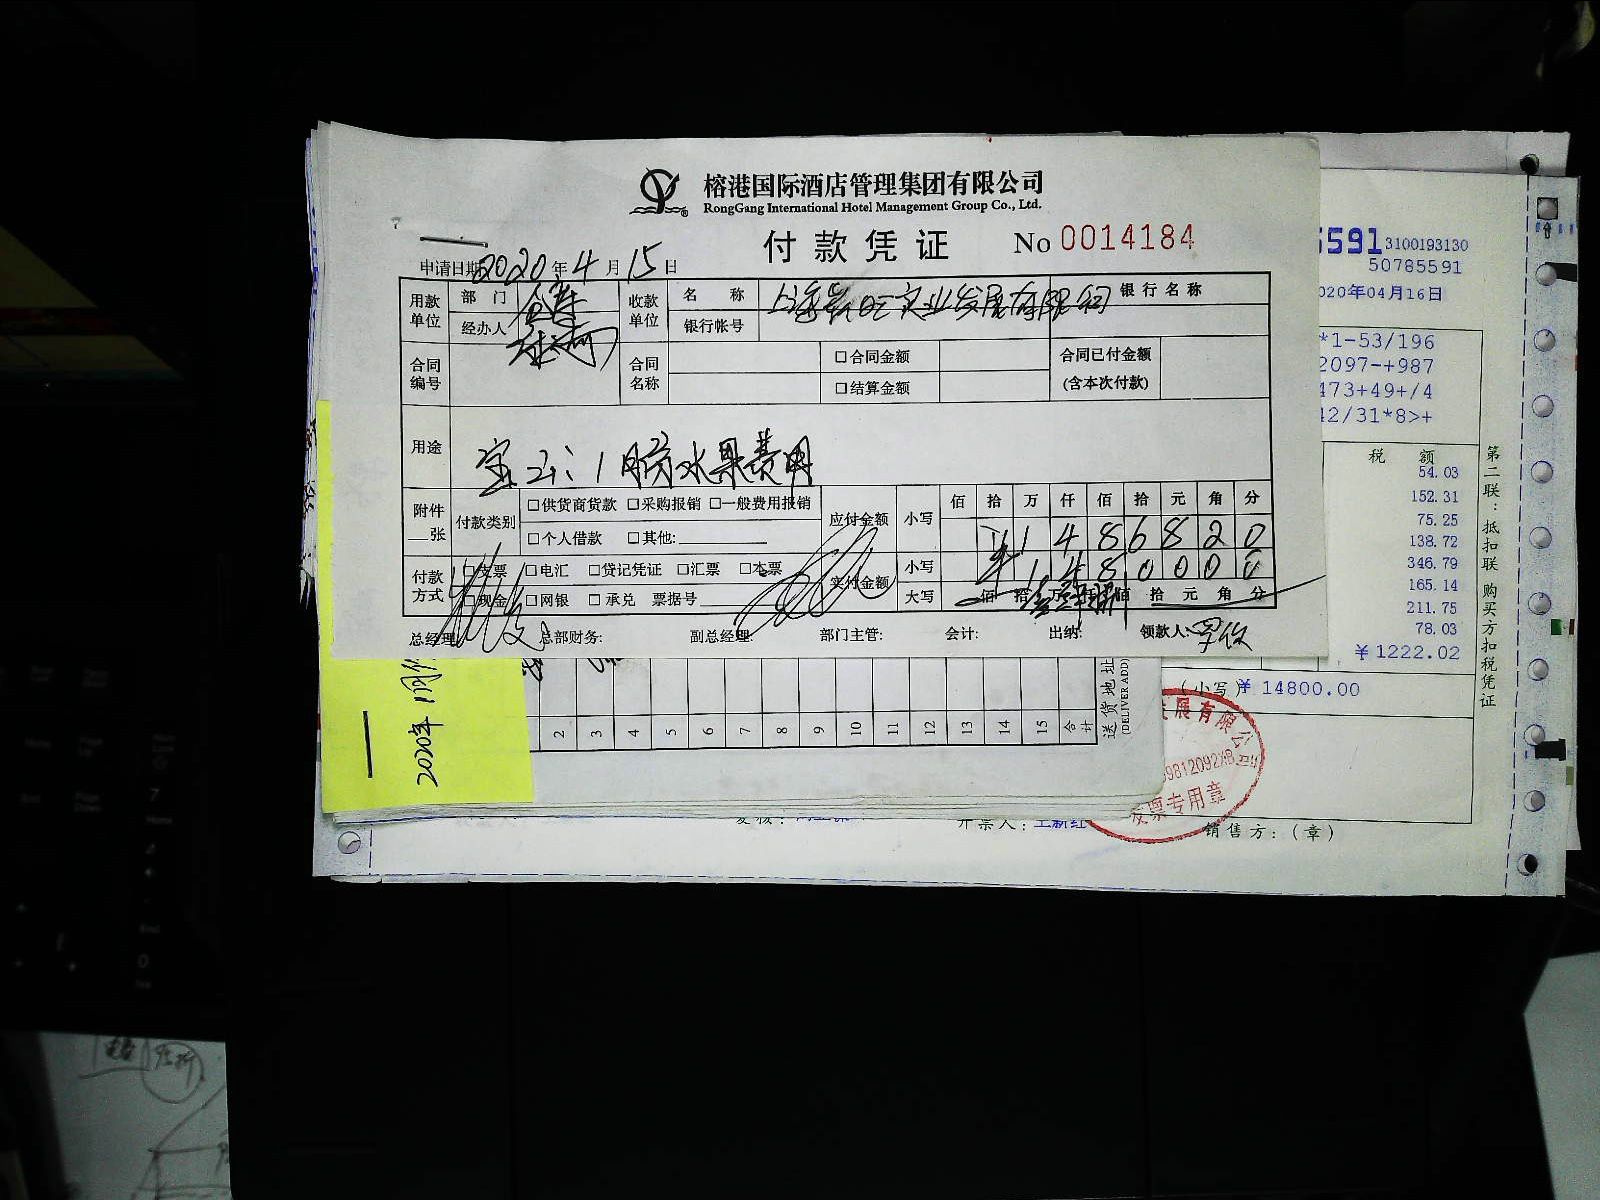 榕港国际酒店管理集团有限公司
RongGang International Hotel Management Group Co., Ltd.
付款凭证 No 0014184
申请日期 2020 年 4 月 15 日
用款单位 部门 经办人
收款单位 名称 实业发展有限公司 银行名称
银行帐号
合同编号 合同名称 □合同金额 合同已付金额
□结算金额 (含本次付款)
用途 1月份水果费用
附件 __张 付款类别 □供货商货款 □采购报销 □一般费用报销
□个人借款 □其他:
应付金额 小写 佰 拾 万 仟 佰 拾 元 角 分
¥ 1 4 8 6 8 2 0
付款方式 □支票 □电汇 □贷记凭证 □汇票 □本票
□现金 □网银 □承兑 票据号
实付金额 小写 ¥ 1 4 8 0 0 0 0
大写 佰 拾 万 仟 佰 拾 元 角 分
总经理: 总部财务: 副总经理: 部门主管: 会计: 出纳: 领款人:
2 3 4 5 6 7 8 9 10 11 12 13 14 15 合计
送货地址
(DELIVER ADD)
2020年 1月
5591 3100193130
50785591
020年04月16日
*1-53/196
2097-+987
473+49+/4
42/31*8>+
税额
54.03
152.31
75.25
138.72
346.79
165.14
211.75
78.03
¥1222.02
(小写) ¥14800.00
第二联:抵扣联 购买方扣税凭证
发展有限公司
9812092XB
发票专用章
复核:
开票人: 王新红
销售方:(章)